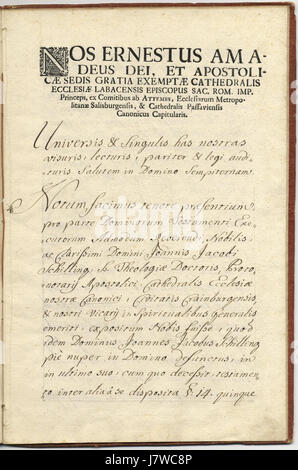 NOS ERNESTUS AMA
DEUS DEI, ET APOSTOLI-
CÆ SEDIS GRATIA EXEMPTÆ CATHEDRALIS
ECCLESIÆ LABACENSIS EPISCOPUS SAC. ROM. IMP.
Princeps, ex Comitibus ab ATTEMIS, Ecclesiarum Metropo-
litanæ Salisburgensis, & Cathedralis Passaviensis
Canonicus Capitularis.
Universis & Singulis has nostras
visuris, lecturis, pariter & legi audi-
turis Salutem in Domino Sempiternam.
Notum facimus tenore præsentium,
pro parte Dominorum Testamenti Exe-
cutorum Admodum Reverendi, Nobilis,
ac Clarissimi Domini Joannis Jacobi
Schilling, SS. Theologiæ Doctoris, Proto-
notarij Apostolici, Cathedralis Ecclesiæ
nostræ Canonici, Civitatis Crainburgensis,
& nostri Vicarij in Spiritualibus Generalis
emeriti expositum Nobis fuisse, quod
idem Dominus Joannes Jacobus Schilling
piè nuper in Domino defunctus, in
in ultimo suo, cum quo decessit, testamen-
to inter alia à se disposita §. 14. quinque
alamy
Image ID: J7WC8P
www.alamy.com